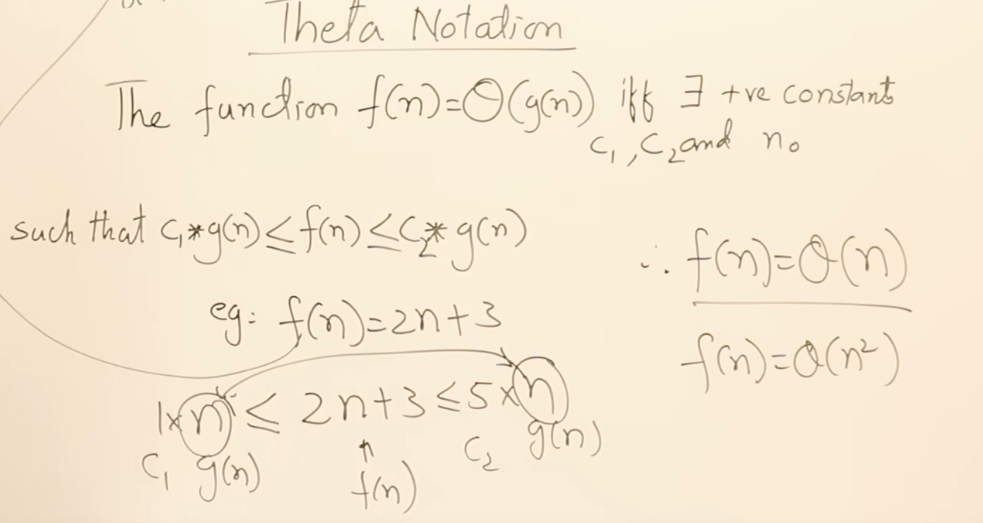 Theta Notation
The function f(n)=Θ(g(n)) iff ∃ +ve constants
c₁, c₂ and n₀
such that c₁*g(n) ≤ f(n) ≤ c₂* g(n)
∴ f(n)=Θ(n)
eg: f(n)=2n+3
f(n)=Θ(n²)
1×n ≤ 2n+3 ≤ 5×n
c₁ g(n) f(n) c₂ g(n)